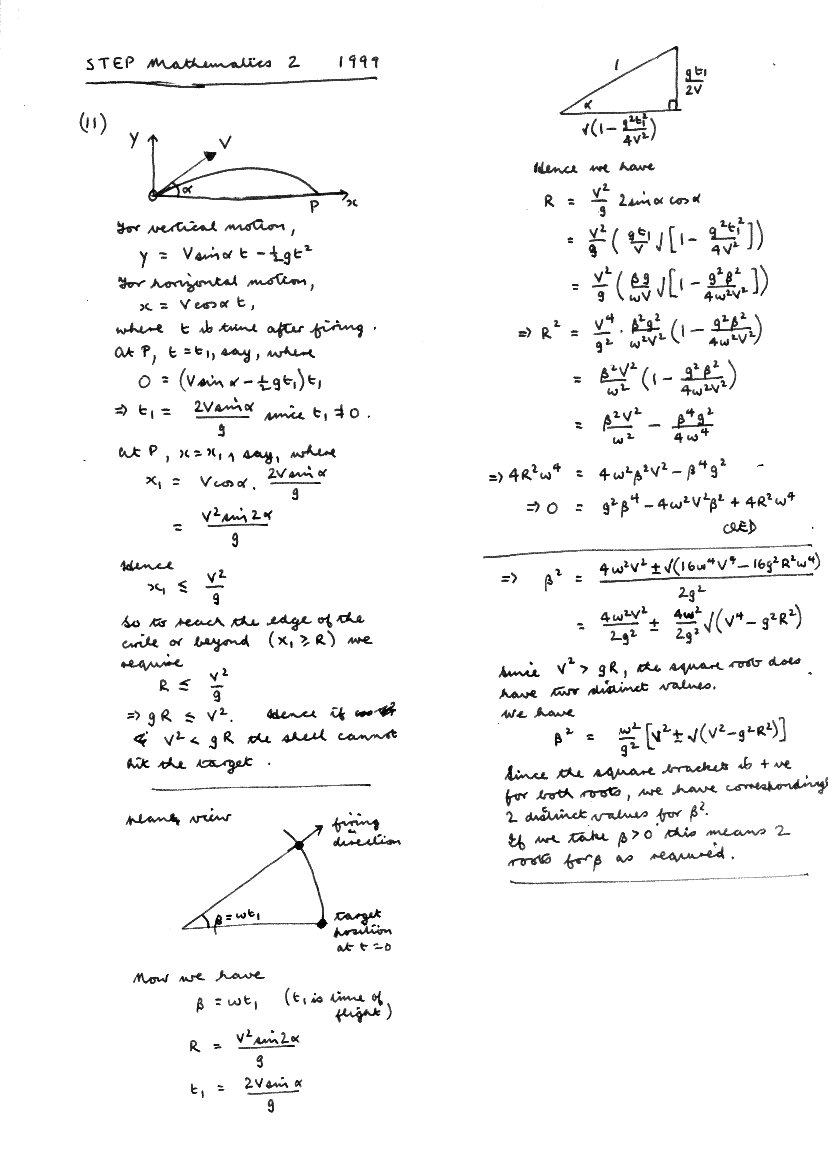 STEP Mathematics 2 1999
(11)
y
V
α
P
x
For vertical motion,
y = V sin α t - ½gt²
For horizontal motion,
x = V cos α t,
where t is time after firing.
At P, t = t₁, say, where
0 = (V sin α - ½gt₁)t₁
⇒ t₁ = 2V sin α / g since t₁ ≠ 0.
At P, x = x₁, say, where
x₁ = V cos α . 2V sin α / g
= V² sin 2α / g
Hence
x₁ ≤ V² / g
So to reach the edge of the
circle or beyond (x₁ ≥ R) we
require
R ≤ V² / g
⇒ gR ≤ V². Hence if
V² < gR the shell cannot
hit the target.
view
firing
direction
β = ωt₁
target
position
at t = 0
Now we have
β = ωt₁ (t₁ is time of
flight)
R = V² sin 2α / g
t₁ = 2V sin α / g
1
gt₁ / 2V
α
√(1 - g²t₁² / 4V²)
Hence we have
R = V²/g 2 sin α cos α
= V²/g (gt₁/V √[1 - g²t₁²/4V²])
= V²/g (βg/ωV √[1 - g²β²/4ω²V²])
⇒ R² = V⁴/g² . β²g²/ω²V² (1 - g²β²/4ω²V²)
= β²V²/ω² (1 - g²β²/4ω²V²)
= β²V²/ω² - β⁴g²/4ω⁴
⇒ 4R²ω⁴ = 4ω²β²V² - β⁴g²
⇒ 0 = g²β⁴ - 4ω²V²β² + 4R²ω⁴
QED
⇒ β² = 4ω²V² ± √(16ω⁴V⁴ - 16g²R²ω⁴) / 2g²
= 4ω²V²/2g² ± 4ω²/2g² √(V⁴ - g²R²)
Since V² > gR, the square root does
have two distinct values.
We have
β² = ω²/g² [V² ± √(V² - g²R²)]
Since the square bracket is +ve
for both roots, we have corresponding
2 distinct values for β².
If we take β > 0 this means 2
roots for β as required.